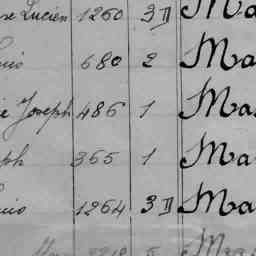 se Lucien 1260 3 II Ma
uis 680 2 Ma
ie Joseph 486 1 Ma
ph 365 1 Ma
uis 1264 3 II Ma
Ma